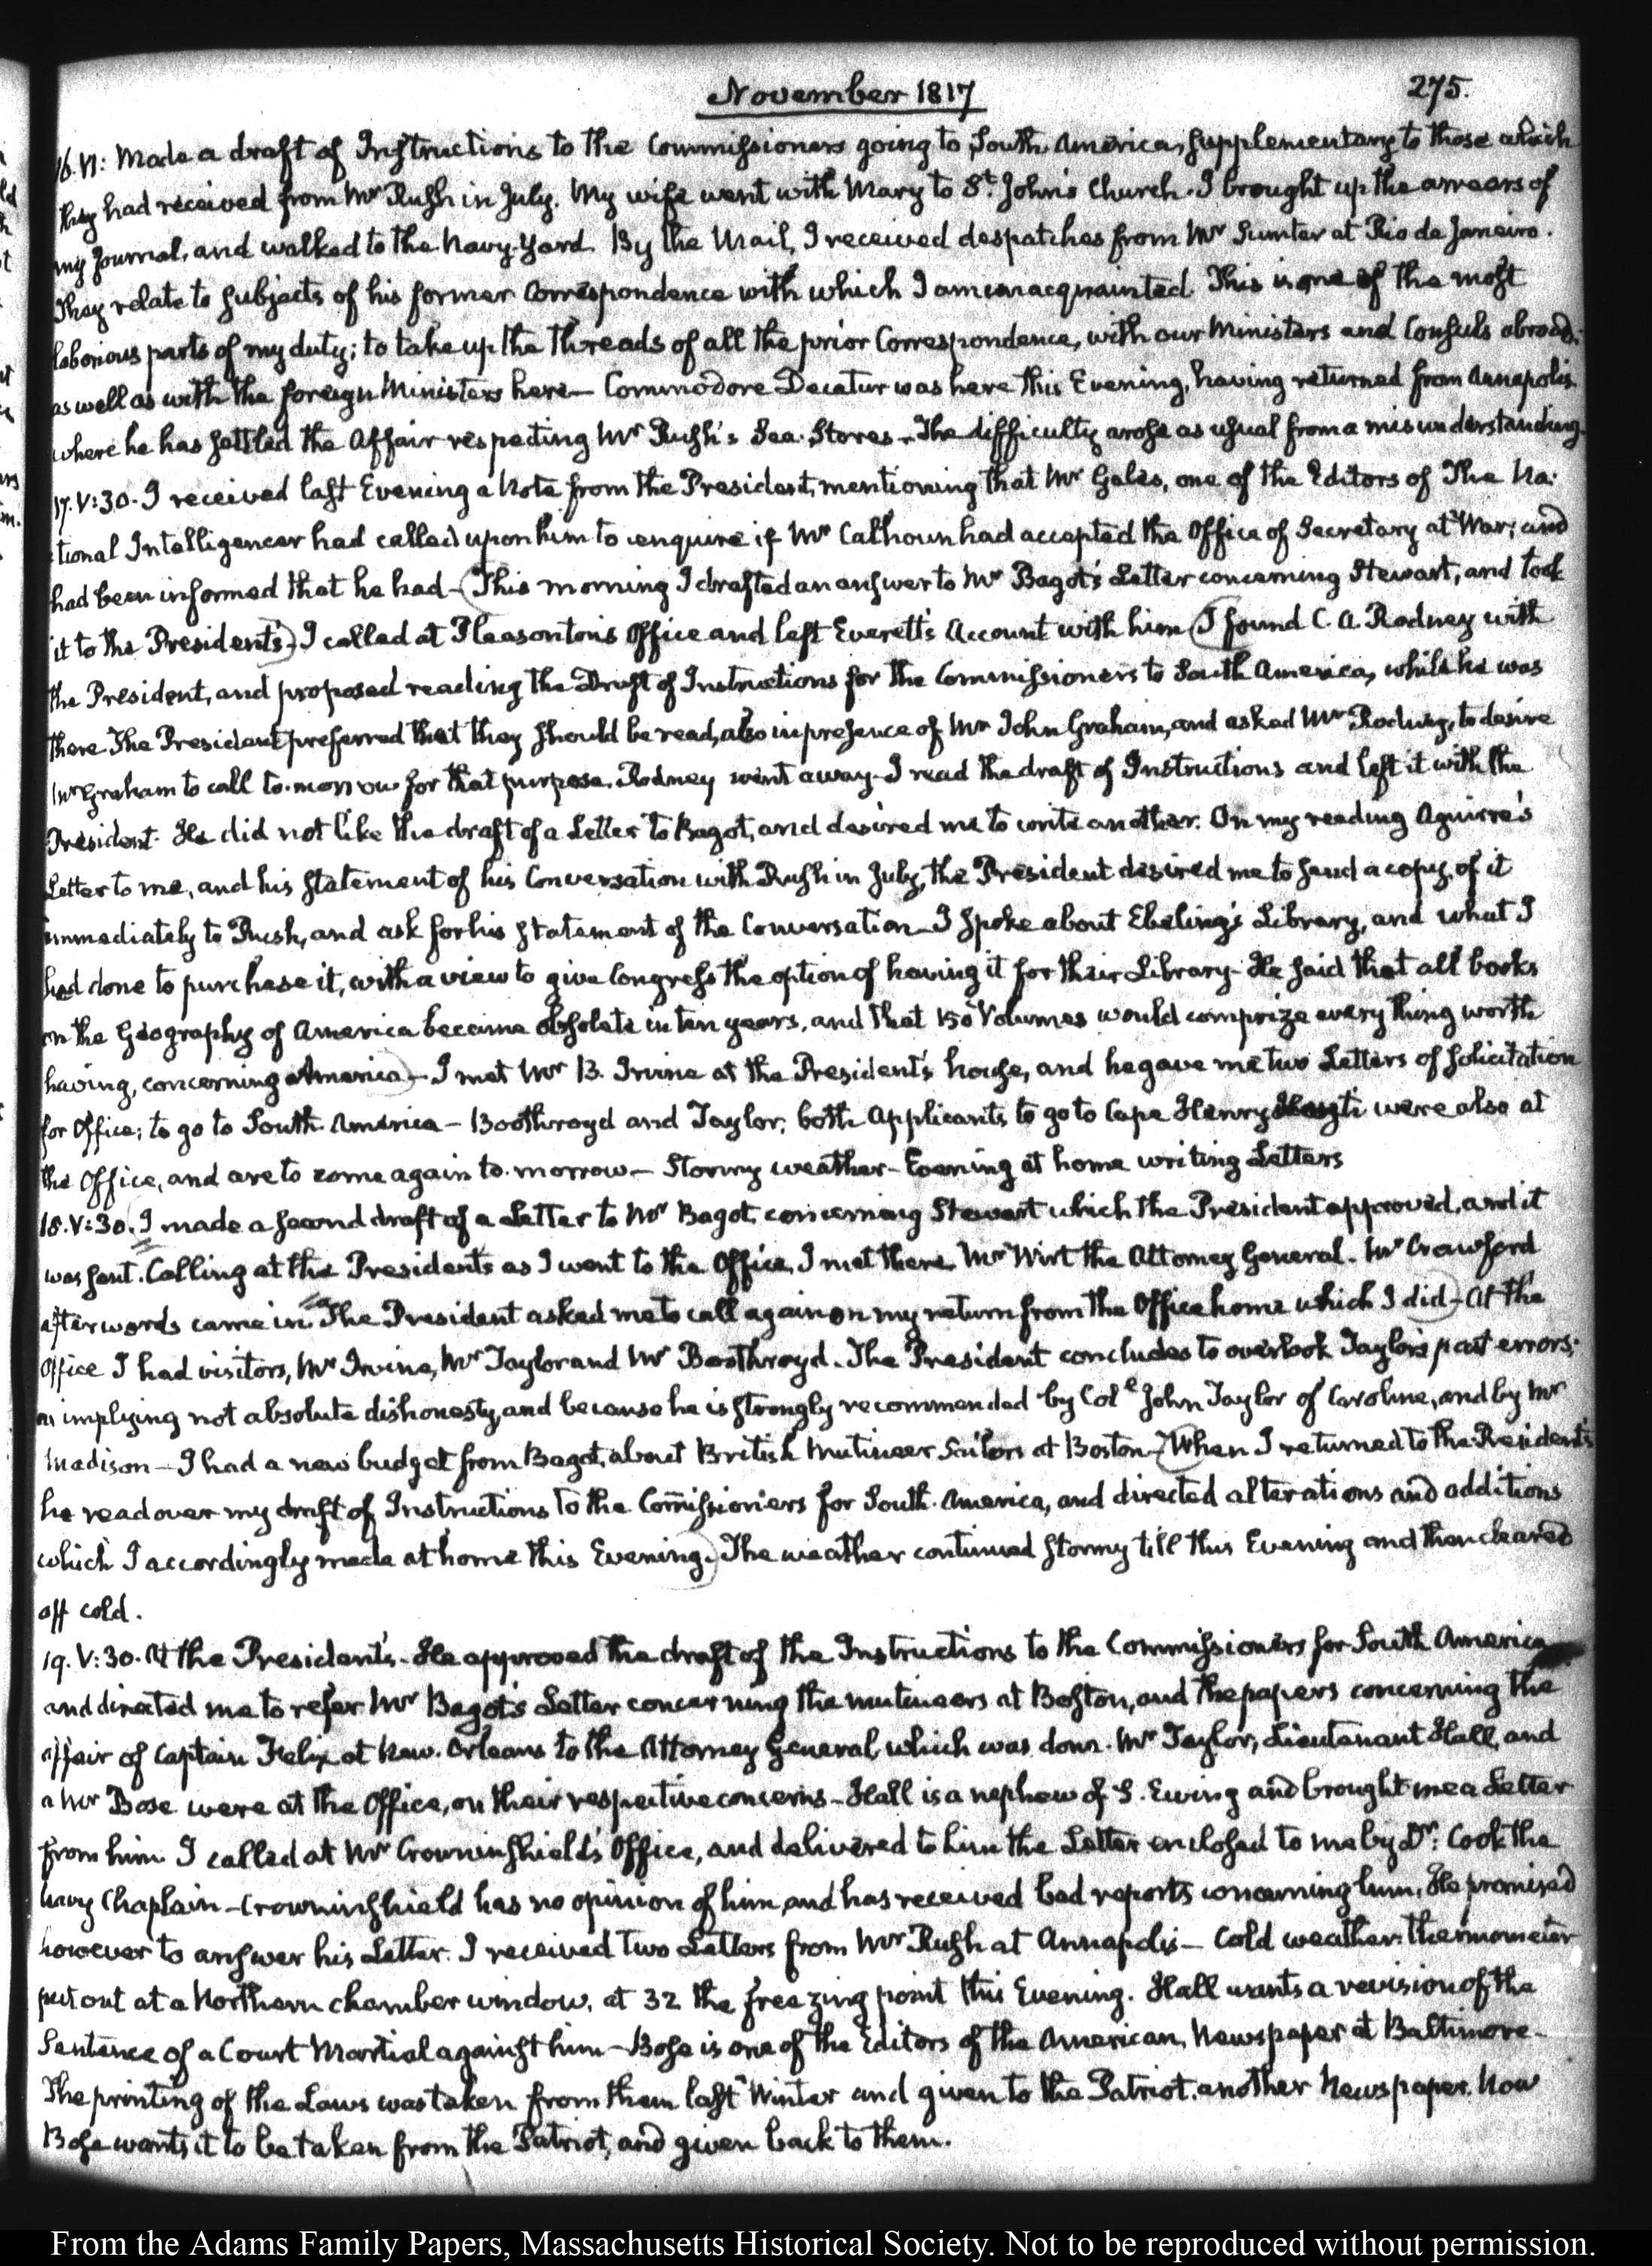 November 1817
275.
16. VI: Made a draft of Instructions to the Commissioners going to South America, supplementary to those which
they had received from Mr Rush in July. My wife went with Mary to St. John's Church. I brought up the arrears of
my Journal, and walked to the Navy-Yard. By the Mail, I received despatches from Mr Sumter at Rio de Janeiro.
They relate to subjects of his former Correspondence with which I am unacquainted. This is one of the most
laborious parts of my duty; to take up the threads of all the prior Correspondence, with our Ministers and Consuls abroad;
as well as with the foreign Ministers here— Commodore Decatur was here this Evening, having returned from Annapolis
where he has settled the Affair respecting Mr Rush's Sea-Stores— The difficulty arose as usual from a misunderstanding.
17. V:30. I received last Evening a Note from the President, mentioning that Mr Gales, one of the Editors of The Na-
tional Intelligencer had called upon him to enquire if Mr Calhoun had accepted the Office of Secretary at War; and
had been informed that he had— (This morning I drafted an answer to Mr Bagot's Letter concerning Stewart, and took
it to the President's—) I called at Pleasonton's Office and left Everett's Account with him (I found C. A. Rodney with
the President, and proposed reading the Draft of Instructions for the Commissioners to South America, while he was
there. The President preferred that they should be read, also in presence of Mr John Graham, and asked Mr Rodney, to desire
Mr Graham to call to-morrow for that purpose. Rodney went away— I read the draft of Instructions and left it with the
President. He did not like the draft of a Letter to Bagot, and desired me to write another. On my reading Aguirre's
Letter to me, and his statement of his Conversation with Rush in July, the President desired me to send a copy of it
immediately to Rush, and ask for his statement of the Conversation— I spoke about Ebeling's Library, and what I
had done to purchase it, with a view to give Congress the option of having it for their Library— He said that all books
on the Geography of America became obsolete in ten years, and that 150 Volumes would comprize every thing worth
having, concerning America)— I met Mr B. Irvine at the President's house, and he gave me two Letters of solicitation
for Office; to go to South America— Boothroyd and Taylor, both Applicants to go to Cape Henry Hayti were also at
the Office, and are to come again to-morrow— Stormy weather— Evening at home writing Letters
18. V:30. (I made a second draft of a Letter to Mr Bagot, concerning Stewart which the President approved, and it
was sent. Calling at the President's as I went to the Office, I met there Mr Wirt the Attorney General. Mr Crawford
afterwards came in. The President asked me to call again on my return from the Office home which I did)— At the
Office I had visitors, Mr Irvine, Mr Taylor and Mr Boothroyd. The President concludes to overlook Taylor's past errors;
as implying not absolute dishonesty, and because he is strongly recommended by Coll John Taylor of Caroline, and by Mr
Madison— I had a new budget from Bagot, about British Mutineer Sailors at Boston— (When I returned to the President's
he read over my draft of Instructions to the Commissioners for South-America, and directed alterations and additions
which I accordingly made at home this Evening.) The weather continued stormy till this Evening and then cleared
off cold.
19. V:30. At the President's. He approved the draft of the Instructions to the Commissioners for South America
and directed me to refer Mr Bagot's Letter concerning the mutineers at Boston, and the papers concerning the
affair of Captain Felix at New-Orleans to the Attorney General which was done. Mr Taylor, Lieutenant Hall, and
a Mr Bose were at the Office, on their respective concerns— Hall is a nephew of S. Ewing and brought me a Letter
from him. I called at Mr Crowninshield's Office, and delivered to him the Letter enclosed to me by Dr: Cook the
Navy Chaplain— Crowninshield has no opinion of him, and has received bad reports concerning him. He promised
however to answer his Letter. I received two Letters from Mr Rush at Annapolis— Cold weather: thermometer
put out at a Northern chamber window, at 32 the freezing point this Evening. Hall wants a revision of the
Sentence of a Court Martial against him— Bose is one of the Editors of the American, Newspaper at Baltimore—
The printing of the Laws was taken from them last Winter and given to the Patriot, another Newspaper. Now
Bose wants it to be taken from the Patriot, and given back to them.
From the Adams Family Papers, Massachusetts Historical Society. Not to be reproduced without permission.